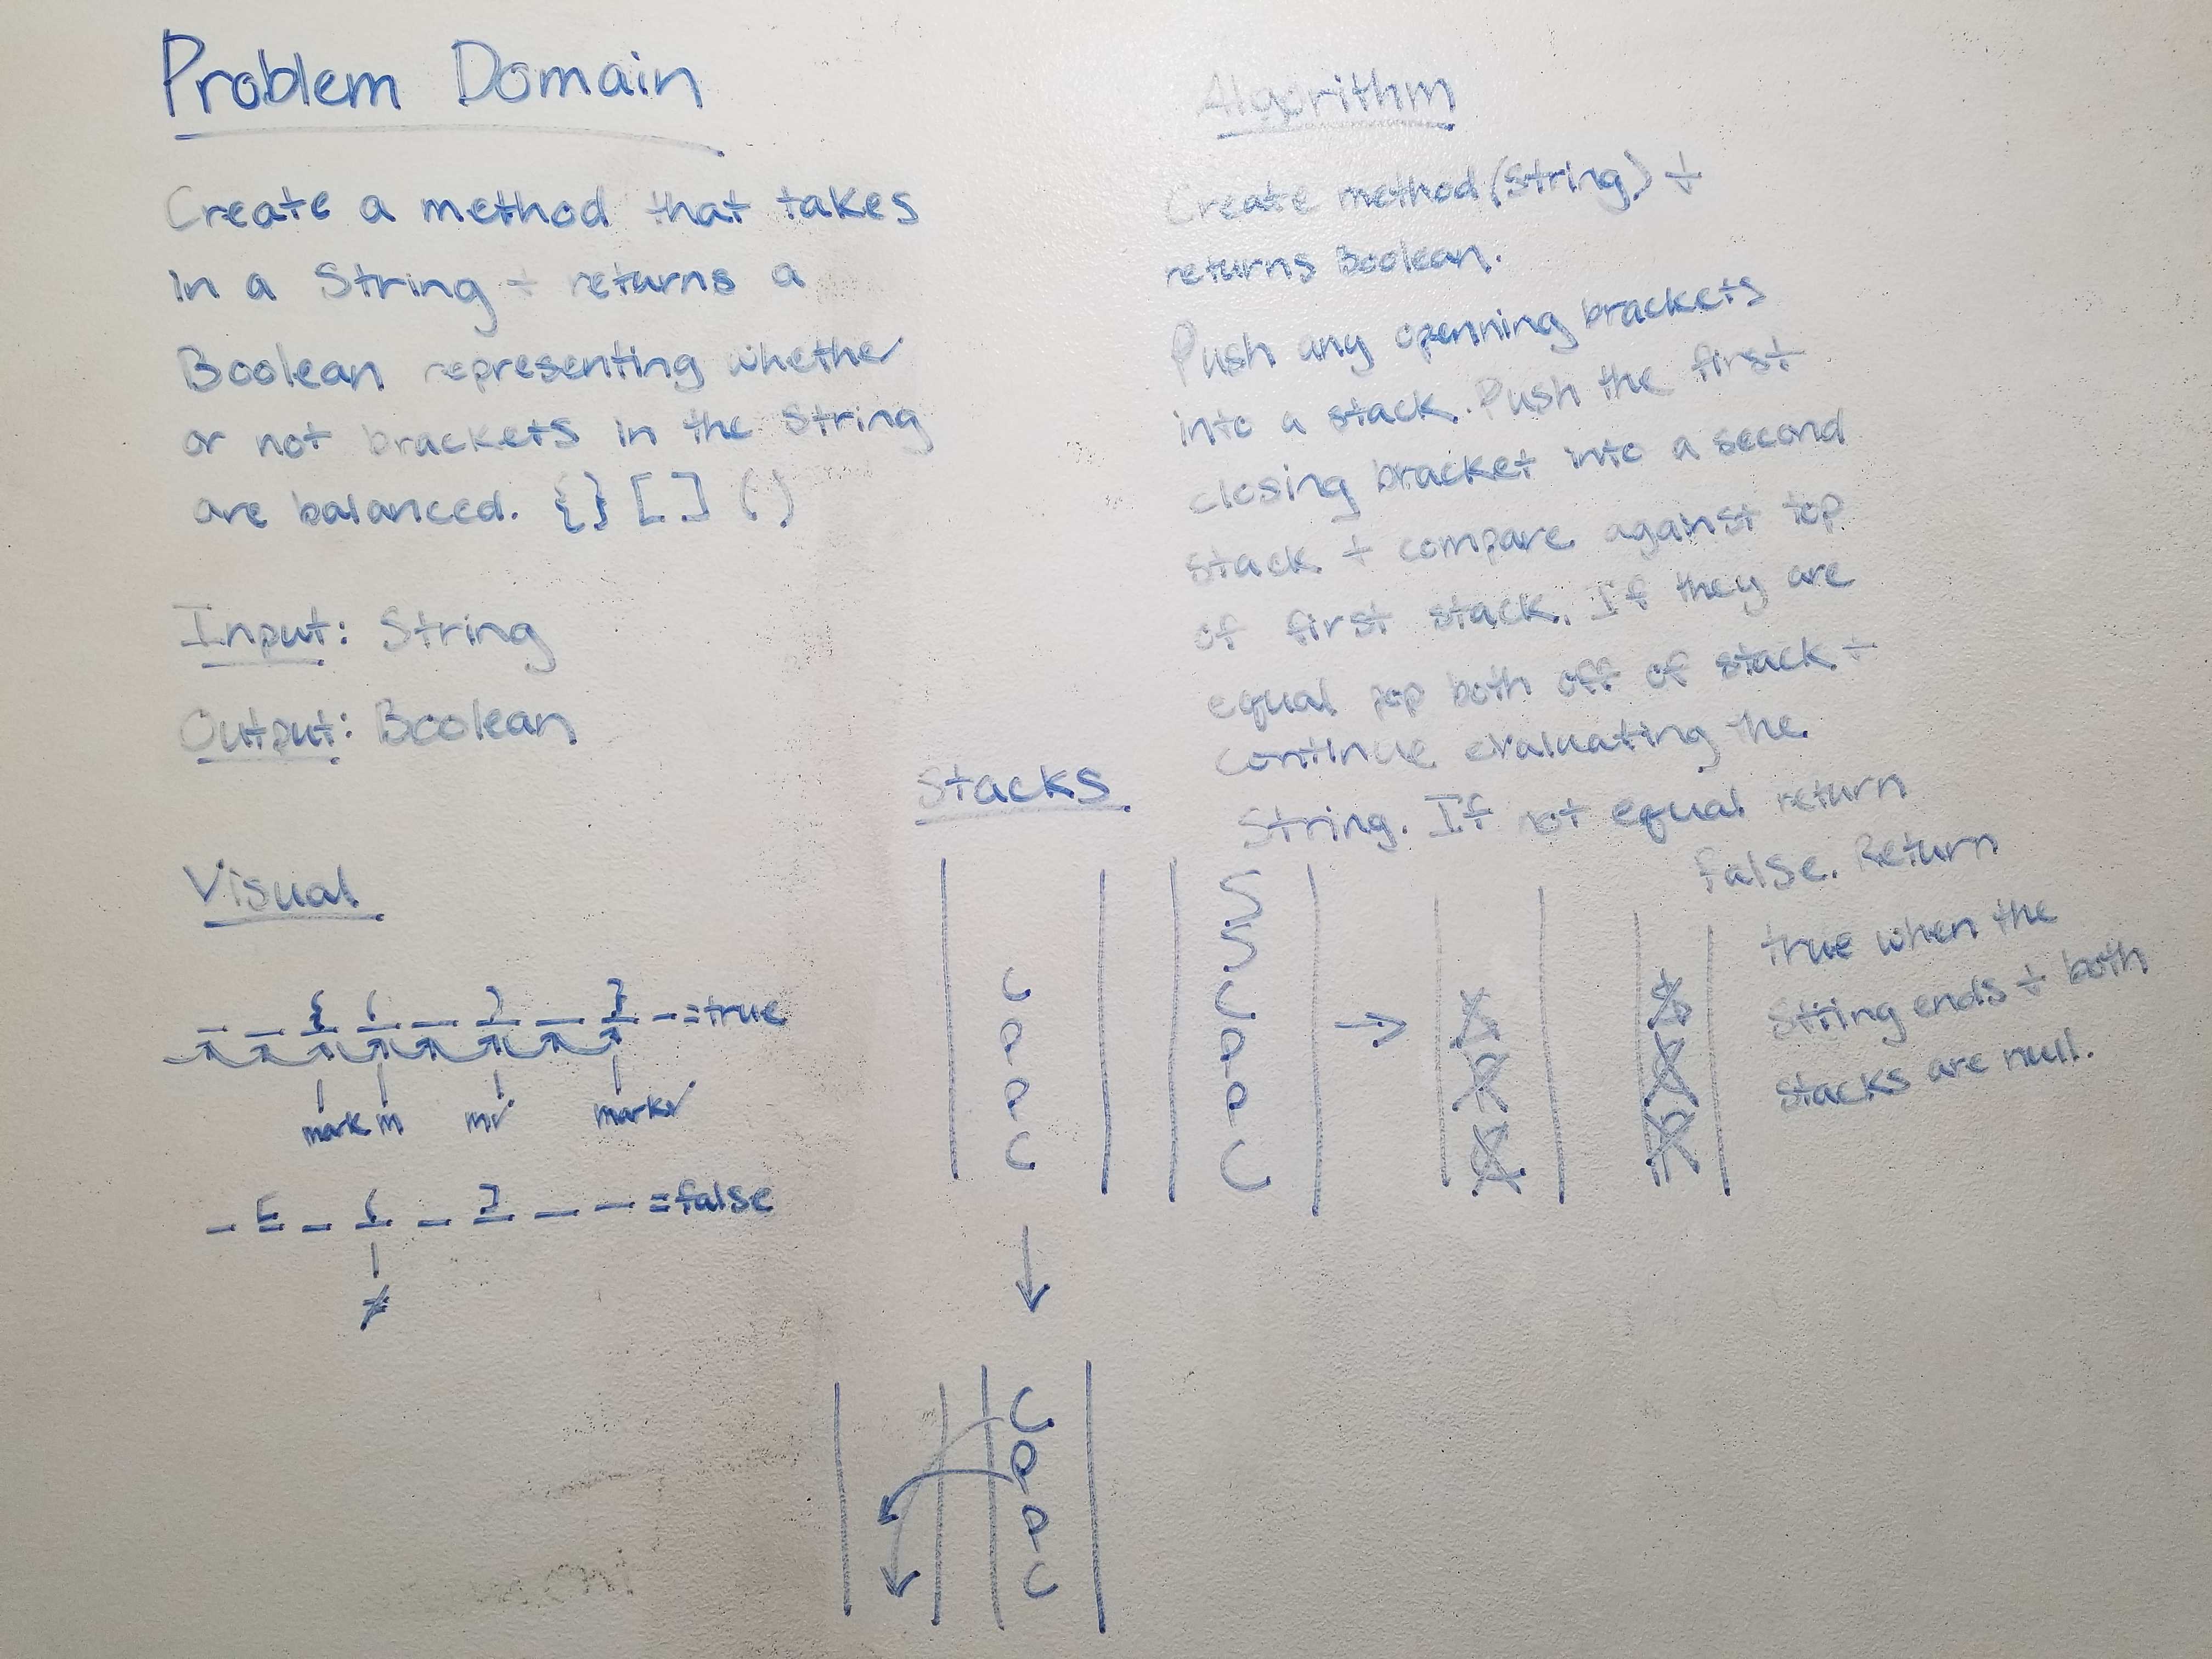 Problem Domain
Create a method that takes
in a String + returns a
Boolean representing whether
or not brackets in the string
are balanced. {} [ ] ( )
Input: String
Output: Boolean
Visual
{ ( ) } = true
mark m m✓ mark✓
[ ( ] = false
≠
Algorithm
Create method (String) +
returns Boolean.
Push any openning brackets
into a stack. Push the first
closing bracket into a second
stack + compare against top
of first stack. If they are
equal pop both off of stack +
continue evaluating the
String. If not equal return
false. Return
true when the
String ends + both
stacks are null.
Stacks
C
P
P
C
S
S
C
P
P
C
C
P
P
C